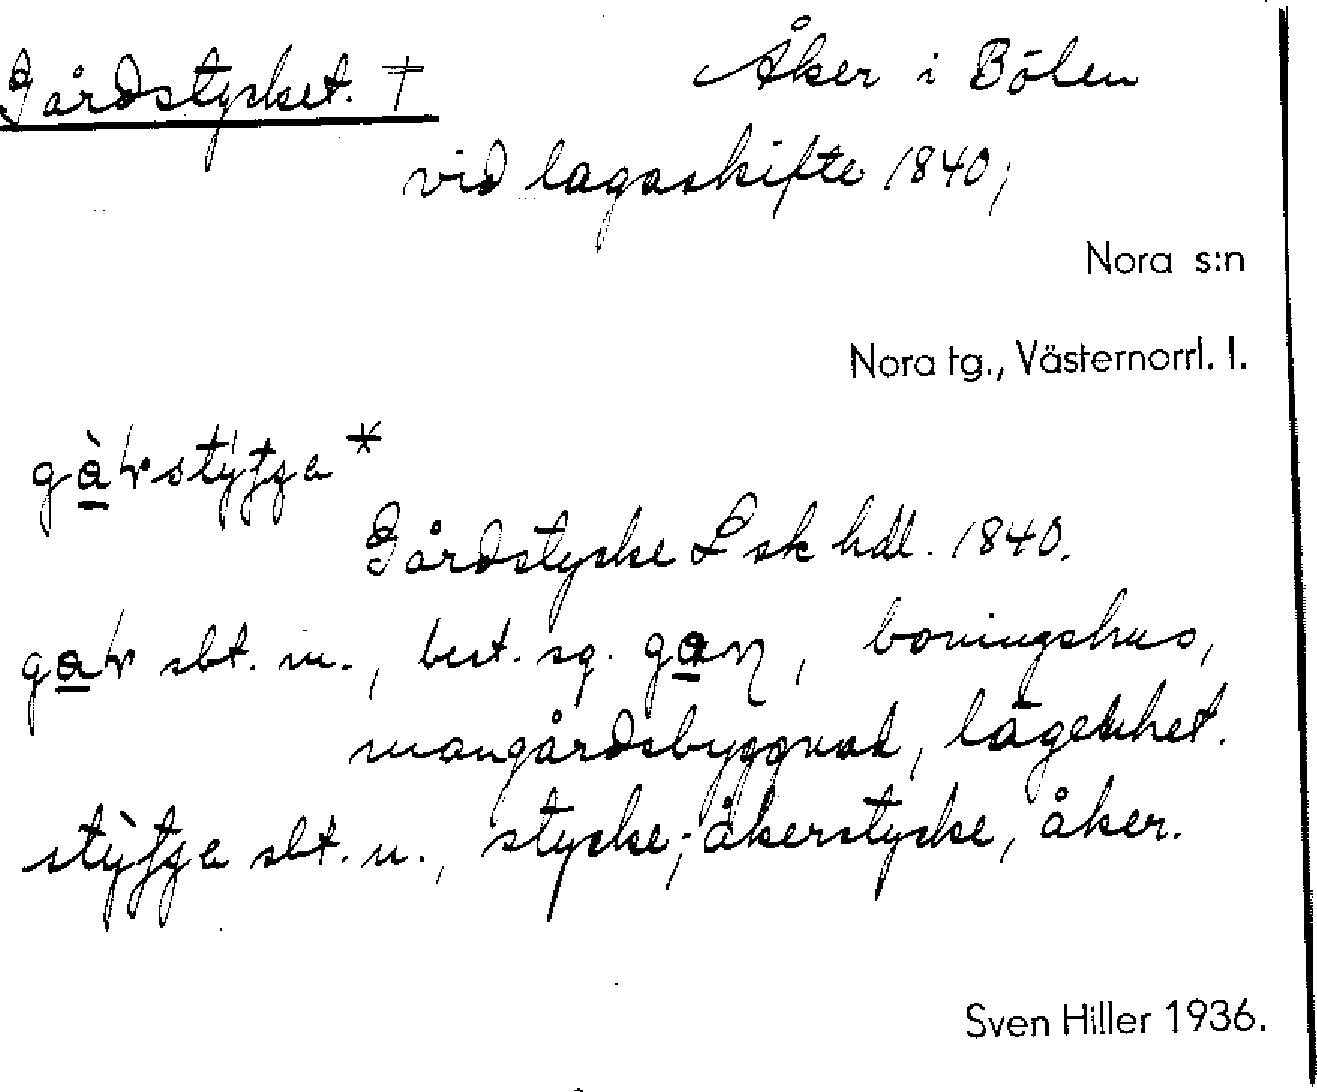 Gårdstycket. † Åker i Bölen
vid lagaskifte 1840;
Nora s:n
Nora tg., Västernorrl. l.
Gårdstycke L sk hdl. 1840.
sbt. m., best. sg. boningshus,
mangårdsbyggnad, lägenhet.
sbt. n., stycke; åkerstycke, åker.
Sven Hiller 1936.